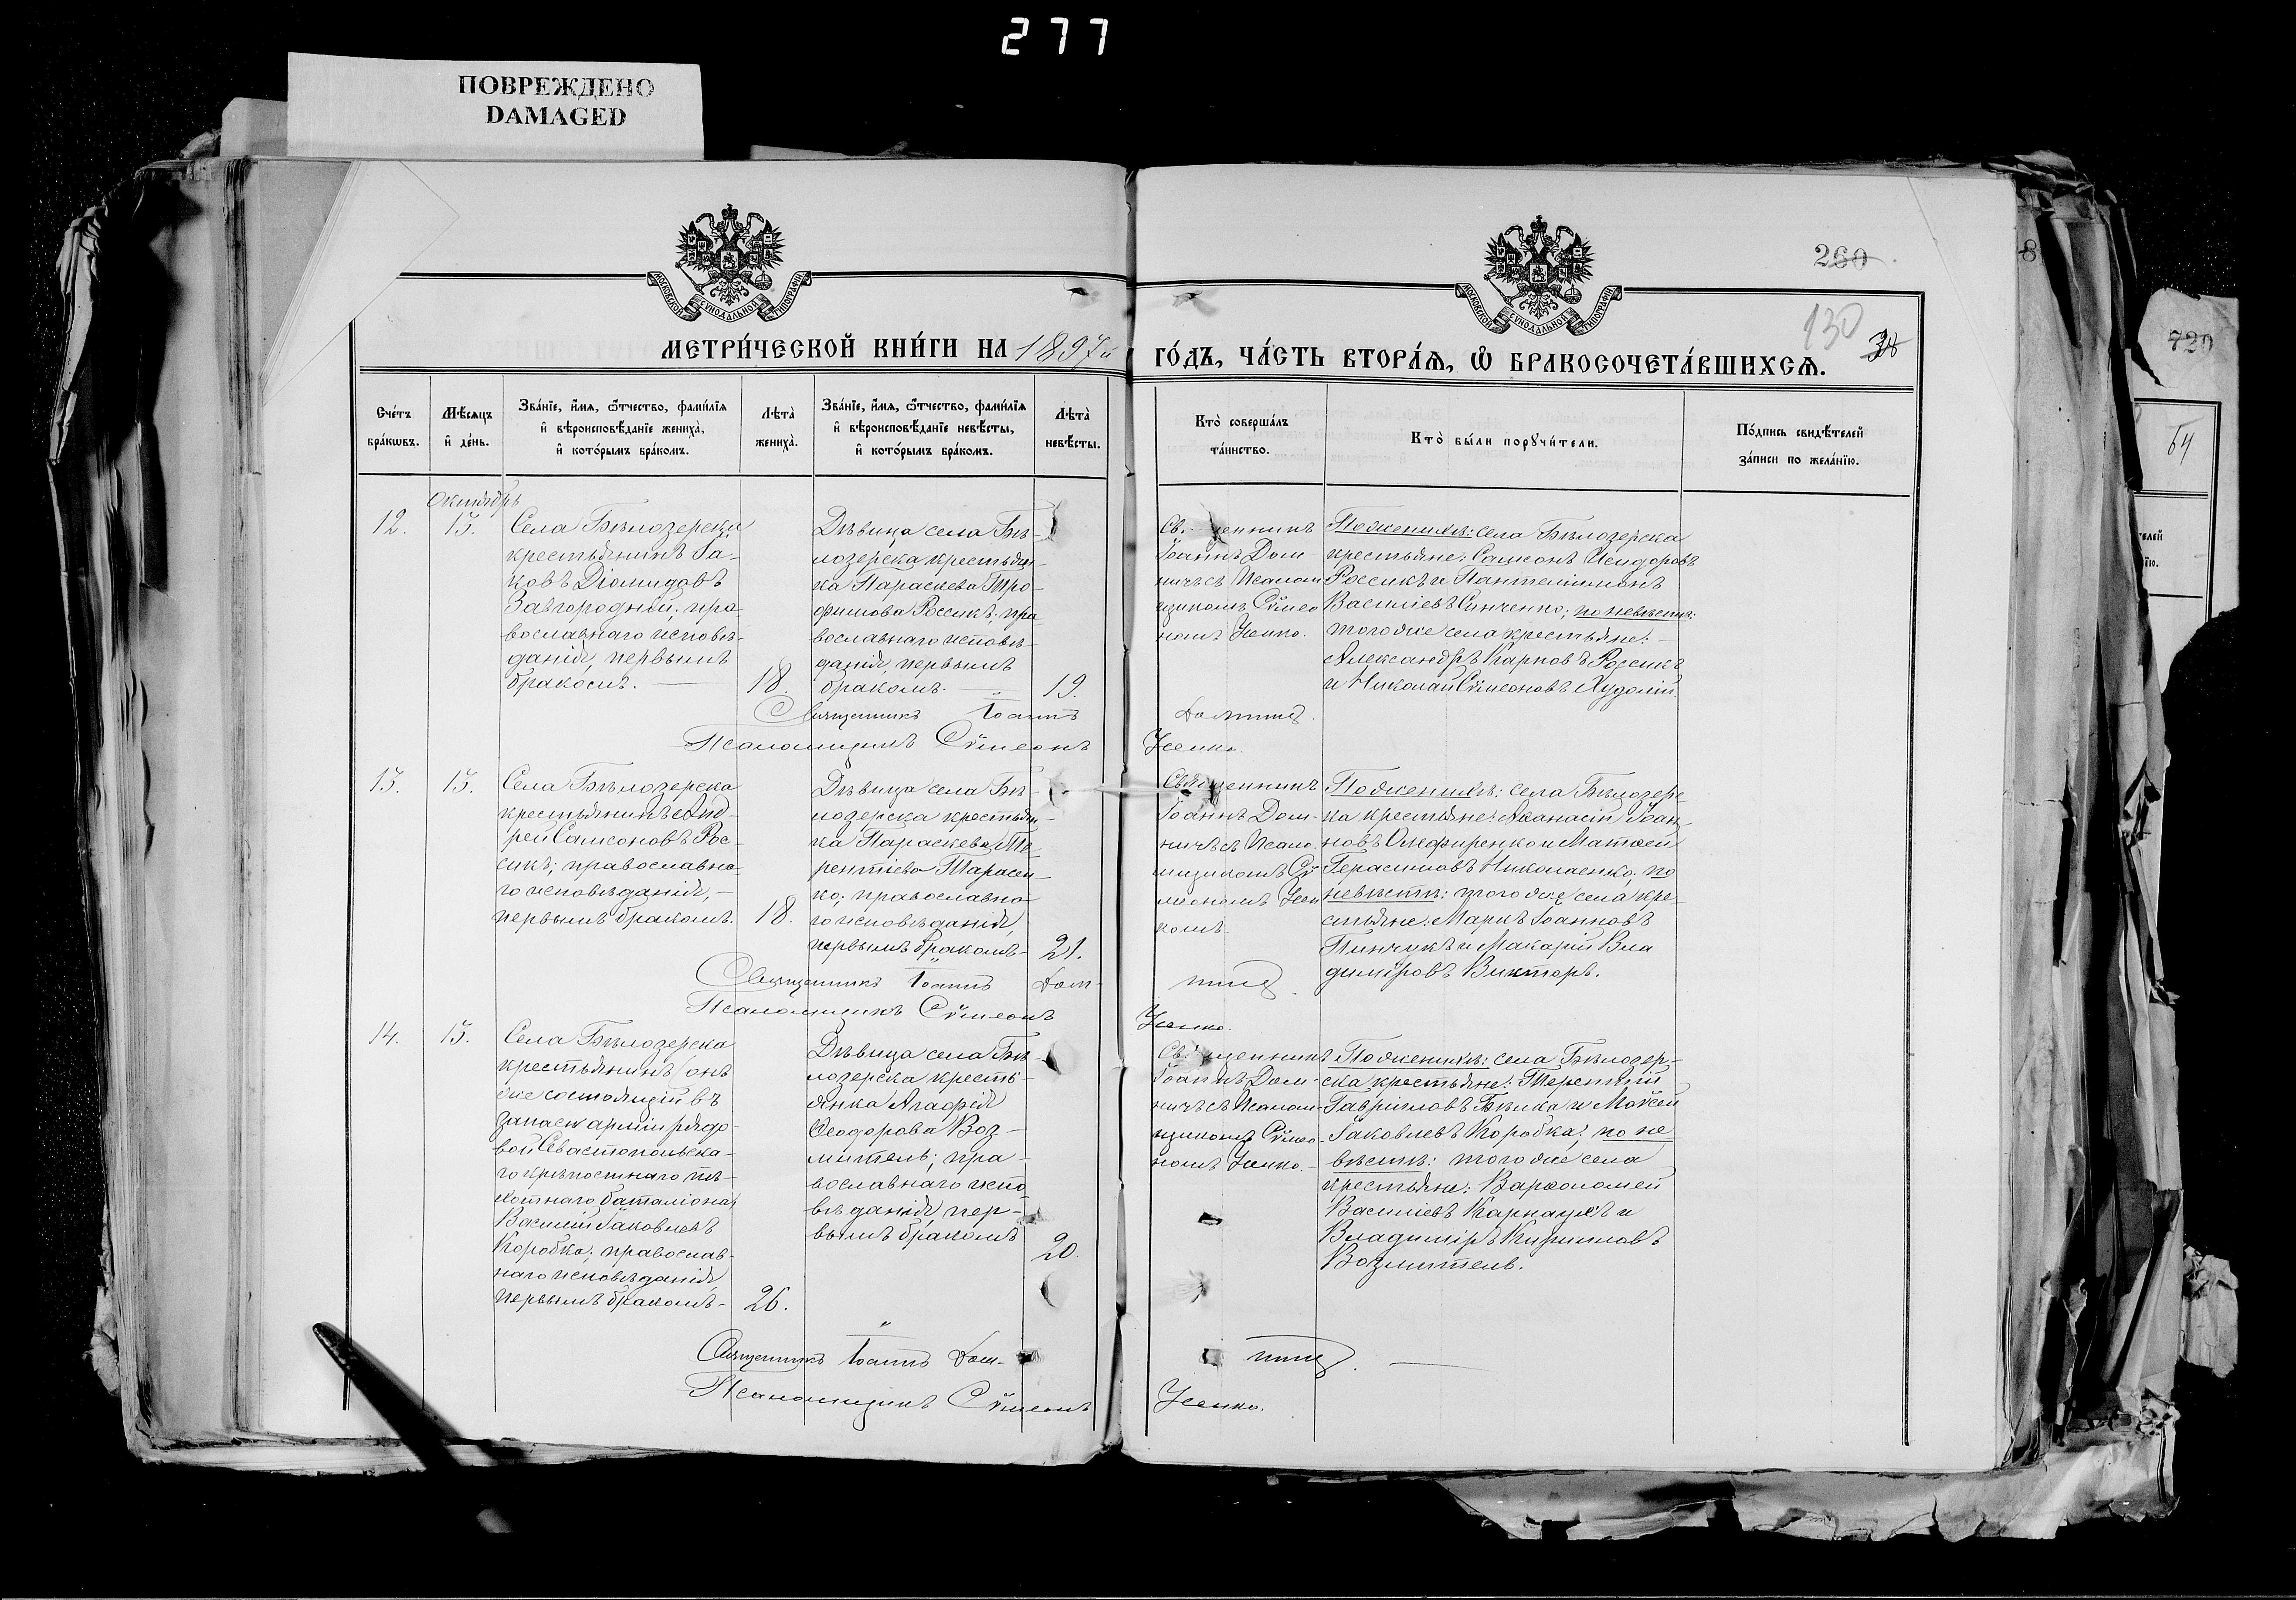 277
ПОВРЕЖДЕНО
DAMAGED
МОСКОВСКОЙ СѴНОДАЛЬНОЙ ТИПОГРАФІИ
МОСКОВСКОЙ СѴНОДАЛЬНОЙ ТИПОГРАФІИ
260
130
МЕТРИ́ЧЕСКОЙ КНИ́ГИ НА 1897й
ГО́ДЪ, ЧА́СТЬ ВТОРА́Я, Ѡ БРАКОСОЧЕТА́ВШИХСЯ.
Сче́тъ
бра́кѡвъ.
Мѣ́сяцъ
и҆ де́нь.
Зва́нїе, и҆́мя, ѻ҆́тчество, фами́лїя
и҆ вѣроисповѣ́данїе жениха̀,
и҆ кото́рымъ бра́комъ.
Лѣта̀
жениха̀.
Зва́нїе, и҆́мя, ѻ҆́тчество, фами́лїя
и҆ вѣроисповѣ́данїе невѣ́сты,
и҆ кото́рымъ бра́комъ.
Лѣта̀
невѣ́сты.
Кто̀ соверша́лъ
та́инство.
Кто̀ бы́ли порꙋчи́тели.
По́дпись свидѣ́телей
за́писи по жела́нїю.
Октябрь
12.
15.
Села Бѣлозерска
крестьянинъ Іа-
ковъ Діомидовъ
Завгородній; пра-
вославнаго исповѣ-
данія, первымъ
бракомъ. —
18.
Дѣвица села Бѣ-
лозерска крестьян-
ка Параскева Тро-
фимова Россикъ; пра
вославнаго исповѣ-
данія, первымъ
бракомъ. —
19.
Священникъ
Іоаннъ Дом
ничъ съ Псалом
щикомъ Сѵмео
номъ Усенко.
По женихѣ: села Бѣлозерска
крестьяне: Самсонъ Исидоровъ
Россикъ и Пантелиимонъ
Василіевъ Синченко; по невѣстѣ:
того же села крестьяне:
Александръ Карповъ Россикъ
и Николай Сѵмеоновъ Худолій
Священникъ Іоаннъ Домничъ.
Псаломщикъ Сѵмеонъ Усенко.
13.
15.
Села Бѣлозерска
крестьянинъ Анд-
рей Самсоновъ Рос-
сикъ; православна-
го исповѣданія, —
первымъ бракомъ.
18.
Дѣвица села Бѣ-
лозерска крестьян-
ка Параскева Те-
рентіева Тарасен-
ко; православна-
го исповѣданія,
первымъ бракомъ-
21.
Священникъ
Іоаннъ Дом-
ничъ съ Псало
мщикомъ Сѵ
меономъ Усен
комъ
По женихѣ: села Бѣлозерс-
ка крестьяне: Аѳанасій Іоан-
новъ Олефиренко и Матѳей
Герасимовъ Николаенко; по
невѣстѣ: того же села кре-
стьяне: Маркъ Іоанновъ
Пинчукъ и Макарій Вла
диміровъ Викторъ.
Священникъ Іоаннъ Дом- ничъ.
Псаломщикъ Сѵмеонъ Усенко.
14.
15.
Села Бѣлозерска
крестьянинъ (онъ
же состоящій въ
запасѣ арміи рядо-
вой Севастопольска-
го крѣпостнаго пѣ-
хотнаго баталіона)
Василій Іаковлевъ
Коробка; православ-
наго исповѣданія,
первымъ бракомъ-
26.
Дѣвица села Бѣ-
лозерска кресть-
янка Агафія
Ѳеодорова Воз-
митель; пра-
вославнаго испо
вѣданія, пер-
вымъ бракомъ
20.
Священникъ
Іоаннъ Дом-
ничъ съ Псалом-
щикомъ Сѵмео-
номъ Усенко.-
По женихѣ: села Бѣлозер-
ска крестьяне: Терентій
Гавріиловъ Бѣлка и Моѵсей
Іаковлевъ Коробка; по не
вѣстѣ: того же села
крестьяне: Варѳоломей
Василіевъ Карнаухъ и
Владиміръ Кирилловъ
Возмитель.
Священникъ Іоаннъ Дом- ничъ.
Псаломщикъ Сѵмеонъ Усенко.
720